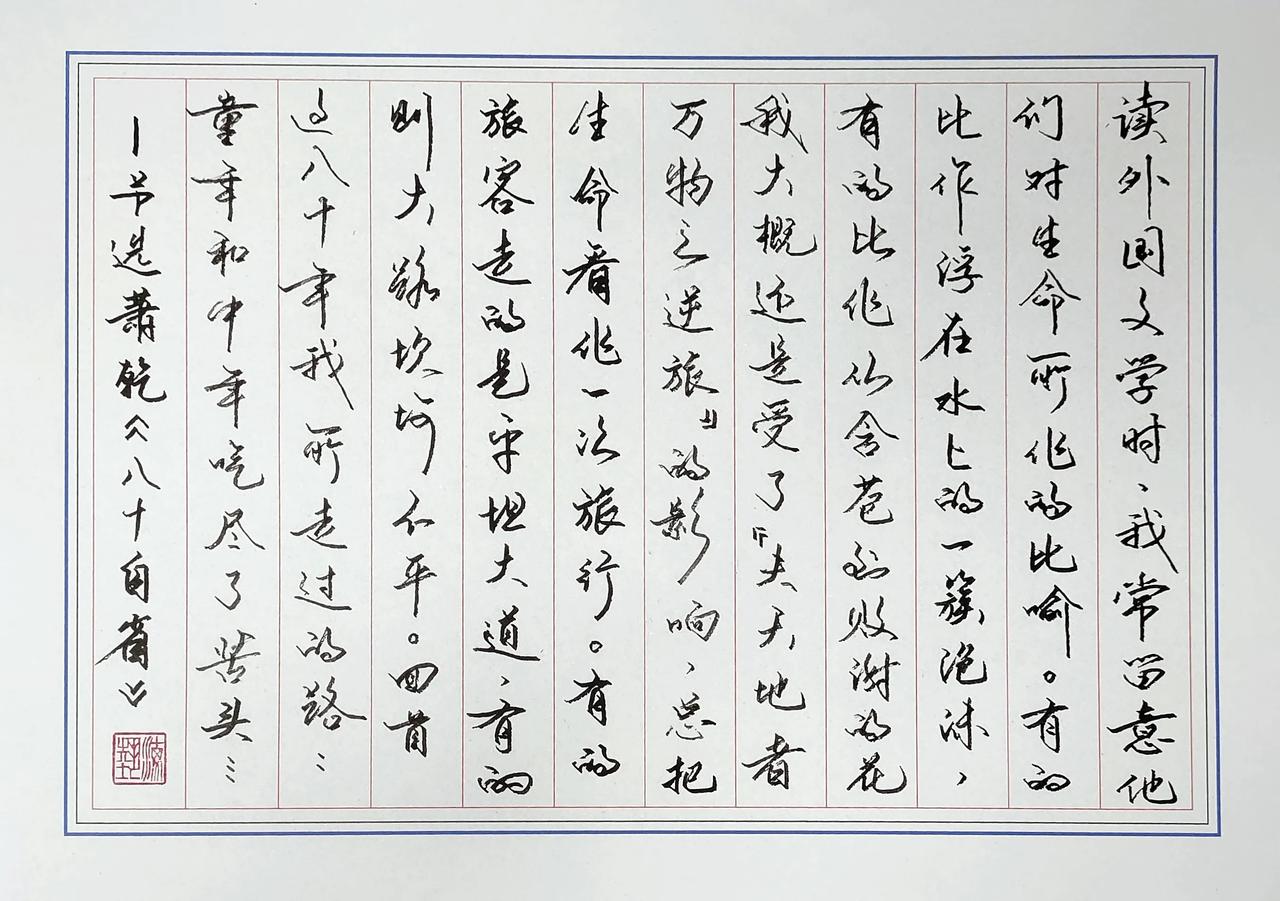 读外国文学时、我常留意他
们对生命所作的比喻。有的
比作浮在水上的一簇泡沫，
有的比作从含苞到败谢的花
我大概还是受了『夫天地者
万物之逆旅』的影响、总把
生命看作一次旅行。有的
旅客走的是平坦大道、有的
则大路坎坷不平。回首
这八十年我所走过的路…
童年和中年吃尽了苦头…
—节选蕭乾《八十自省》